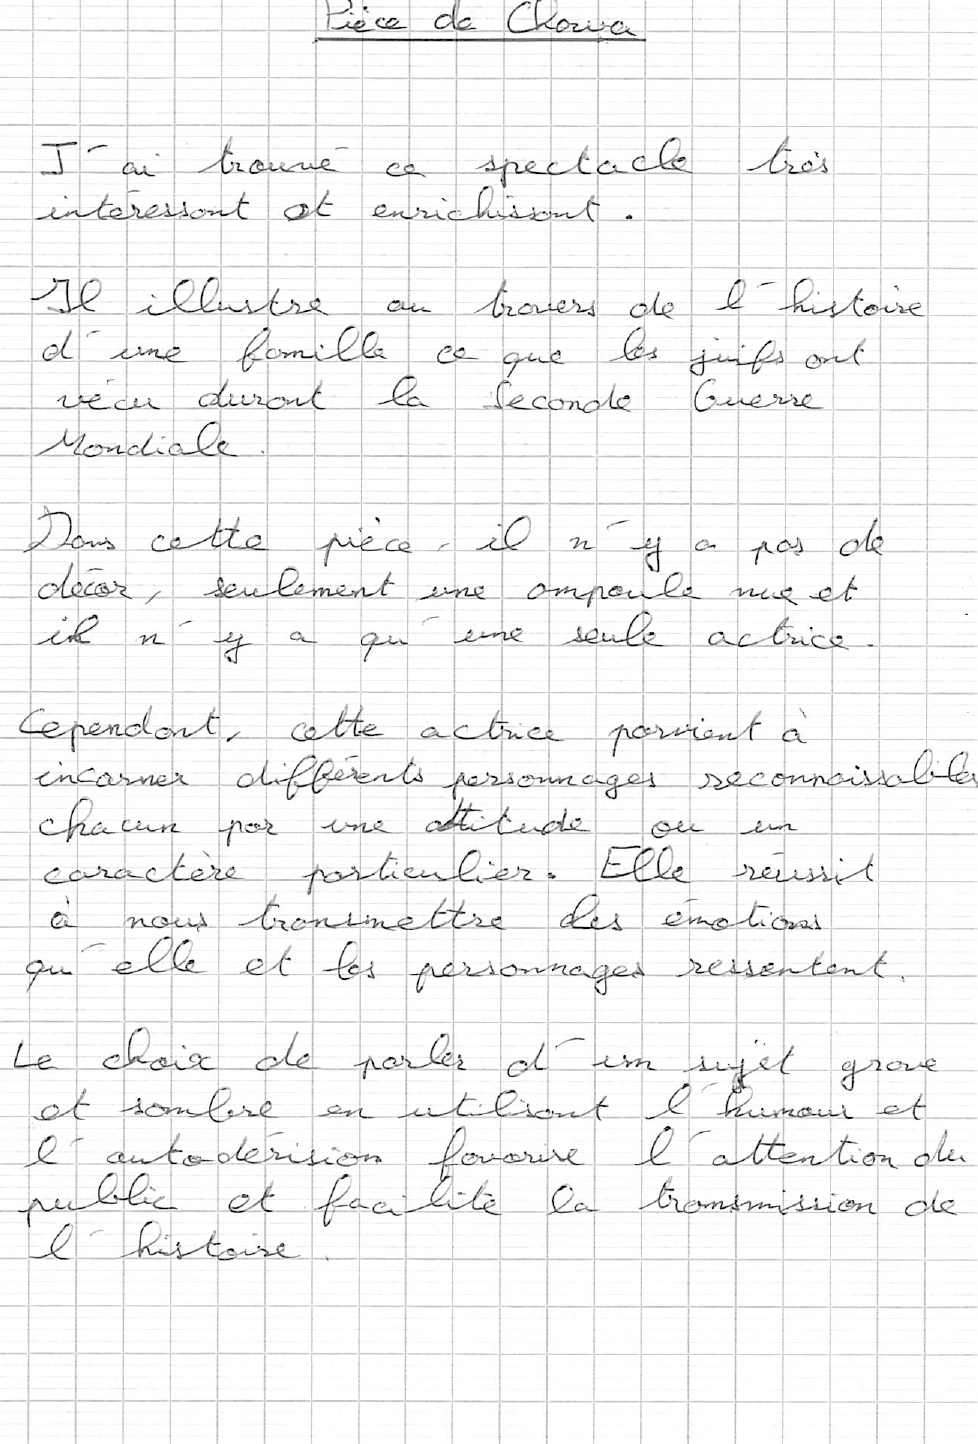 Pièce de Chowa
J'ai trouvé ce spectacle très
intéressant et enrichissant.
Il illustre au travers de l'histoire
d'une famille ce que les juifs ont
vécu durant la Seconde Guerre
Mondiale.
Dans cette pièce, il n'y a pas de
décor, seulement une ampoule nue et
il n'y a qu'une seule actrice.
Cependant, cette actrice parvient à
incarner différents personnages reconnaissables
chacun par une attitude ou un
caractère particulier. Elle réussit
à nous transmettre des émotions
qu'elle et les personnages ressentent.
Le choix de parler d'un sujet grave
et sombre en utilisant l'humour et
l'autodérision favorise l'attention du
public et facilite la transmission de
l'histoire.